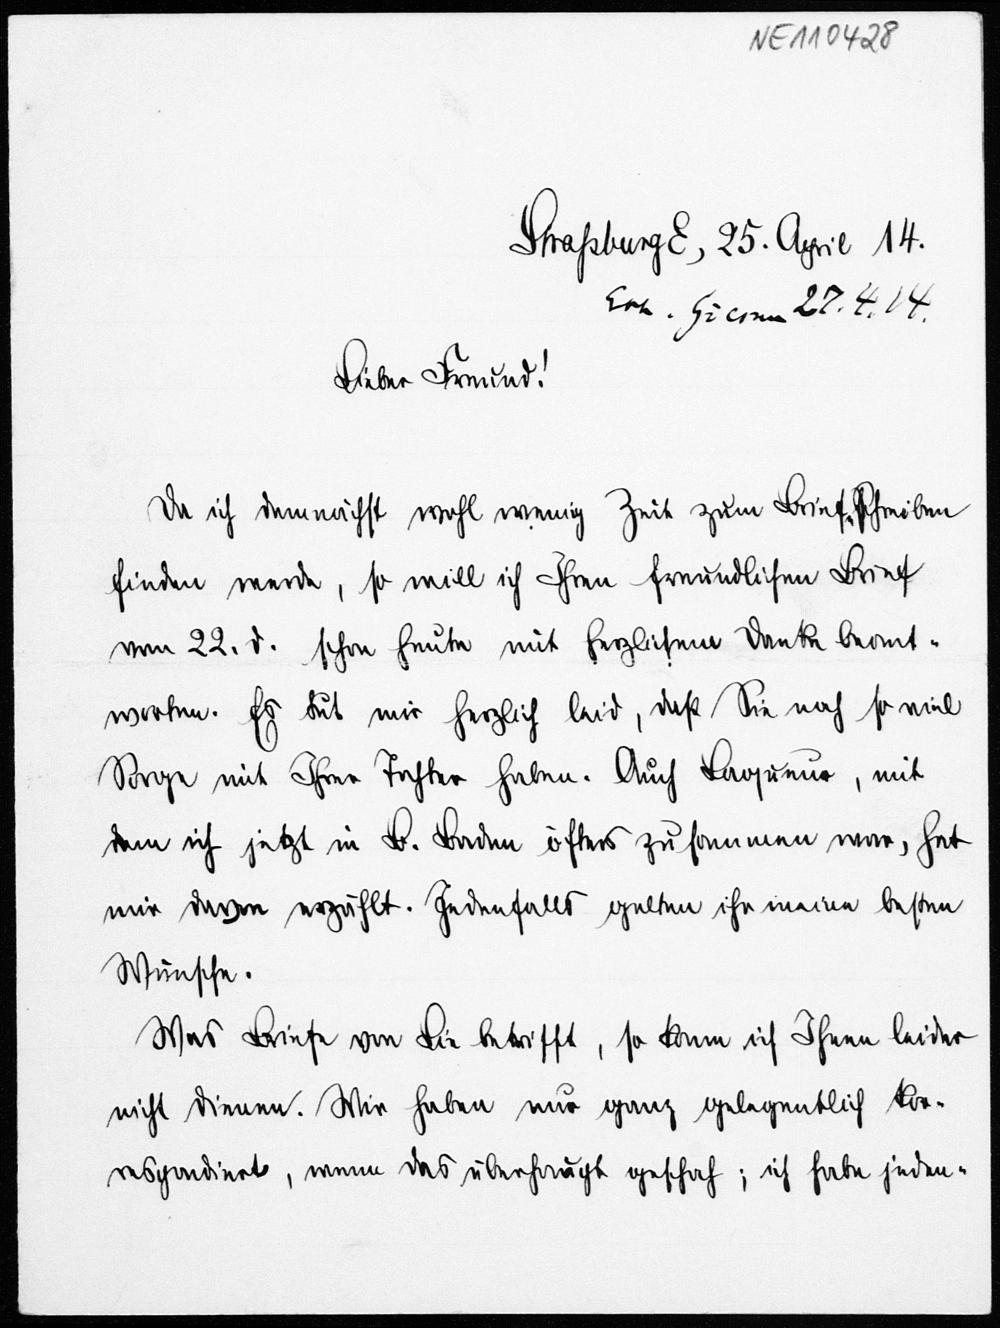 NE110428
Straßburg E, 25. April 14.
27.4.14.
Lieber Freund!
Da ich demnächst wohl wenig Zeit zum Brief Schreiben
finden werde, so will ich Ihren freundlichen Brief
vom 22. d. schon heute mit herzlichem Danke beant-
worten. Es tut mir herzlich leid, daß Sie noch so viel
Sorge mit Ihrer Tochter haben. Auch Laqueur, mit
dem ich jetzt in B. Baden öfters zusammen war, hat
mir davon erzählt. Jedenfalls gelten ihr meine besten
Wünsche.
Was Briefe von Lie betrifft, so kann ich Ihnen leider
nicht dienen. Wir haben nur ganz gelegentlich kor-
respondiert, wenn das überhaupt geschah; ich habe jeden-